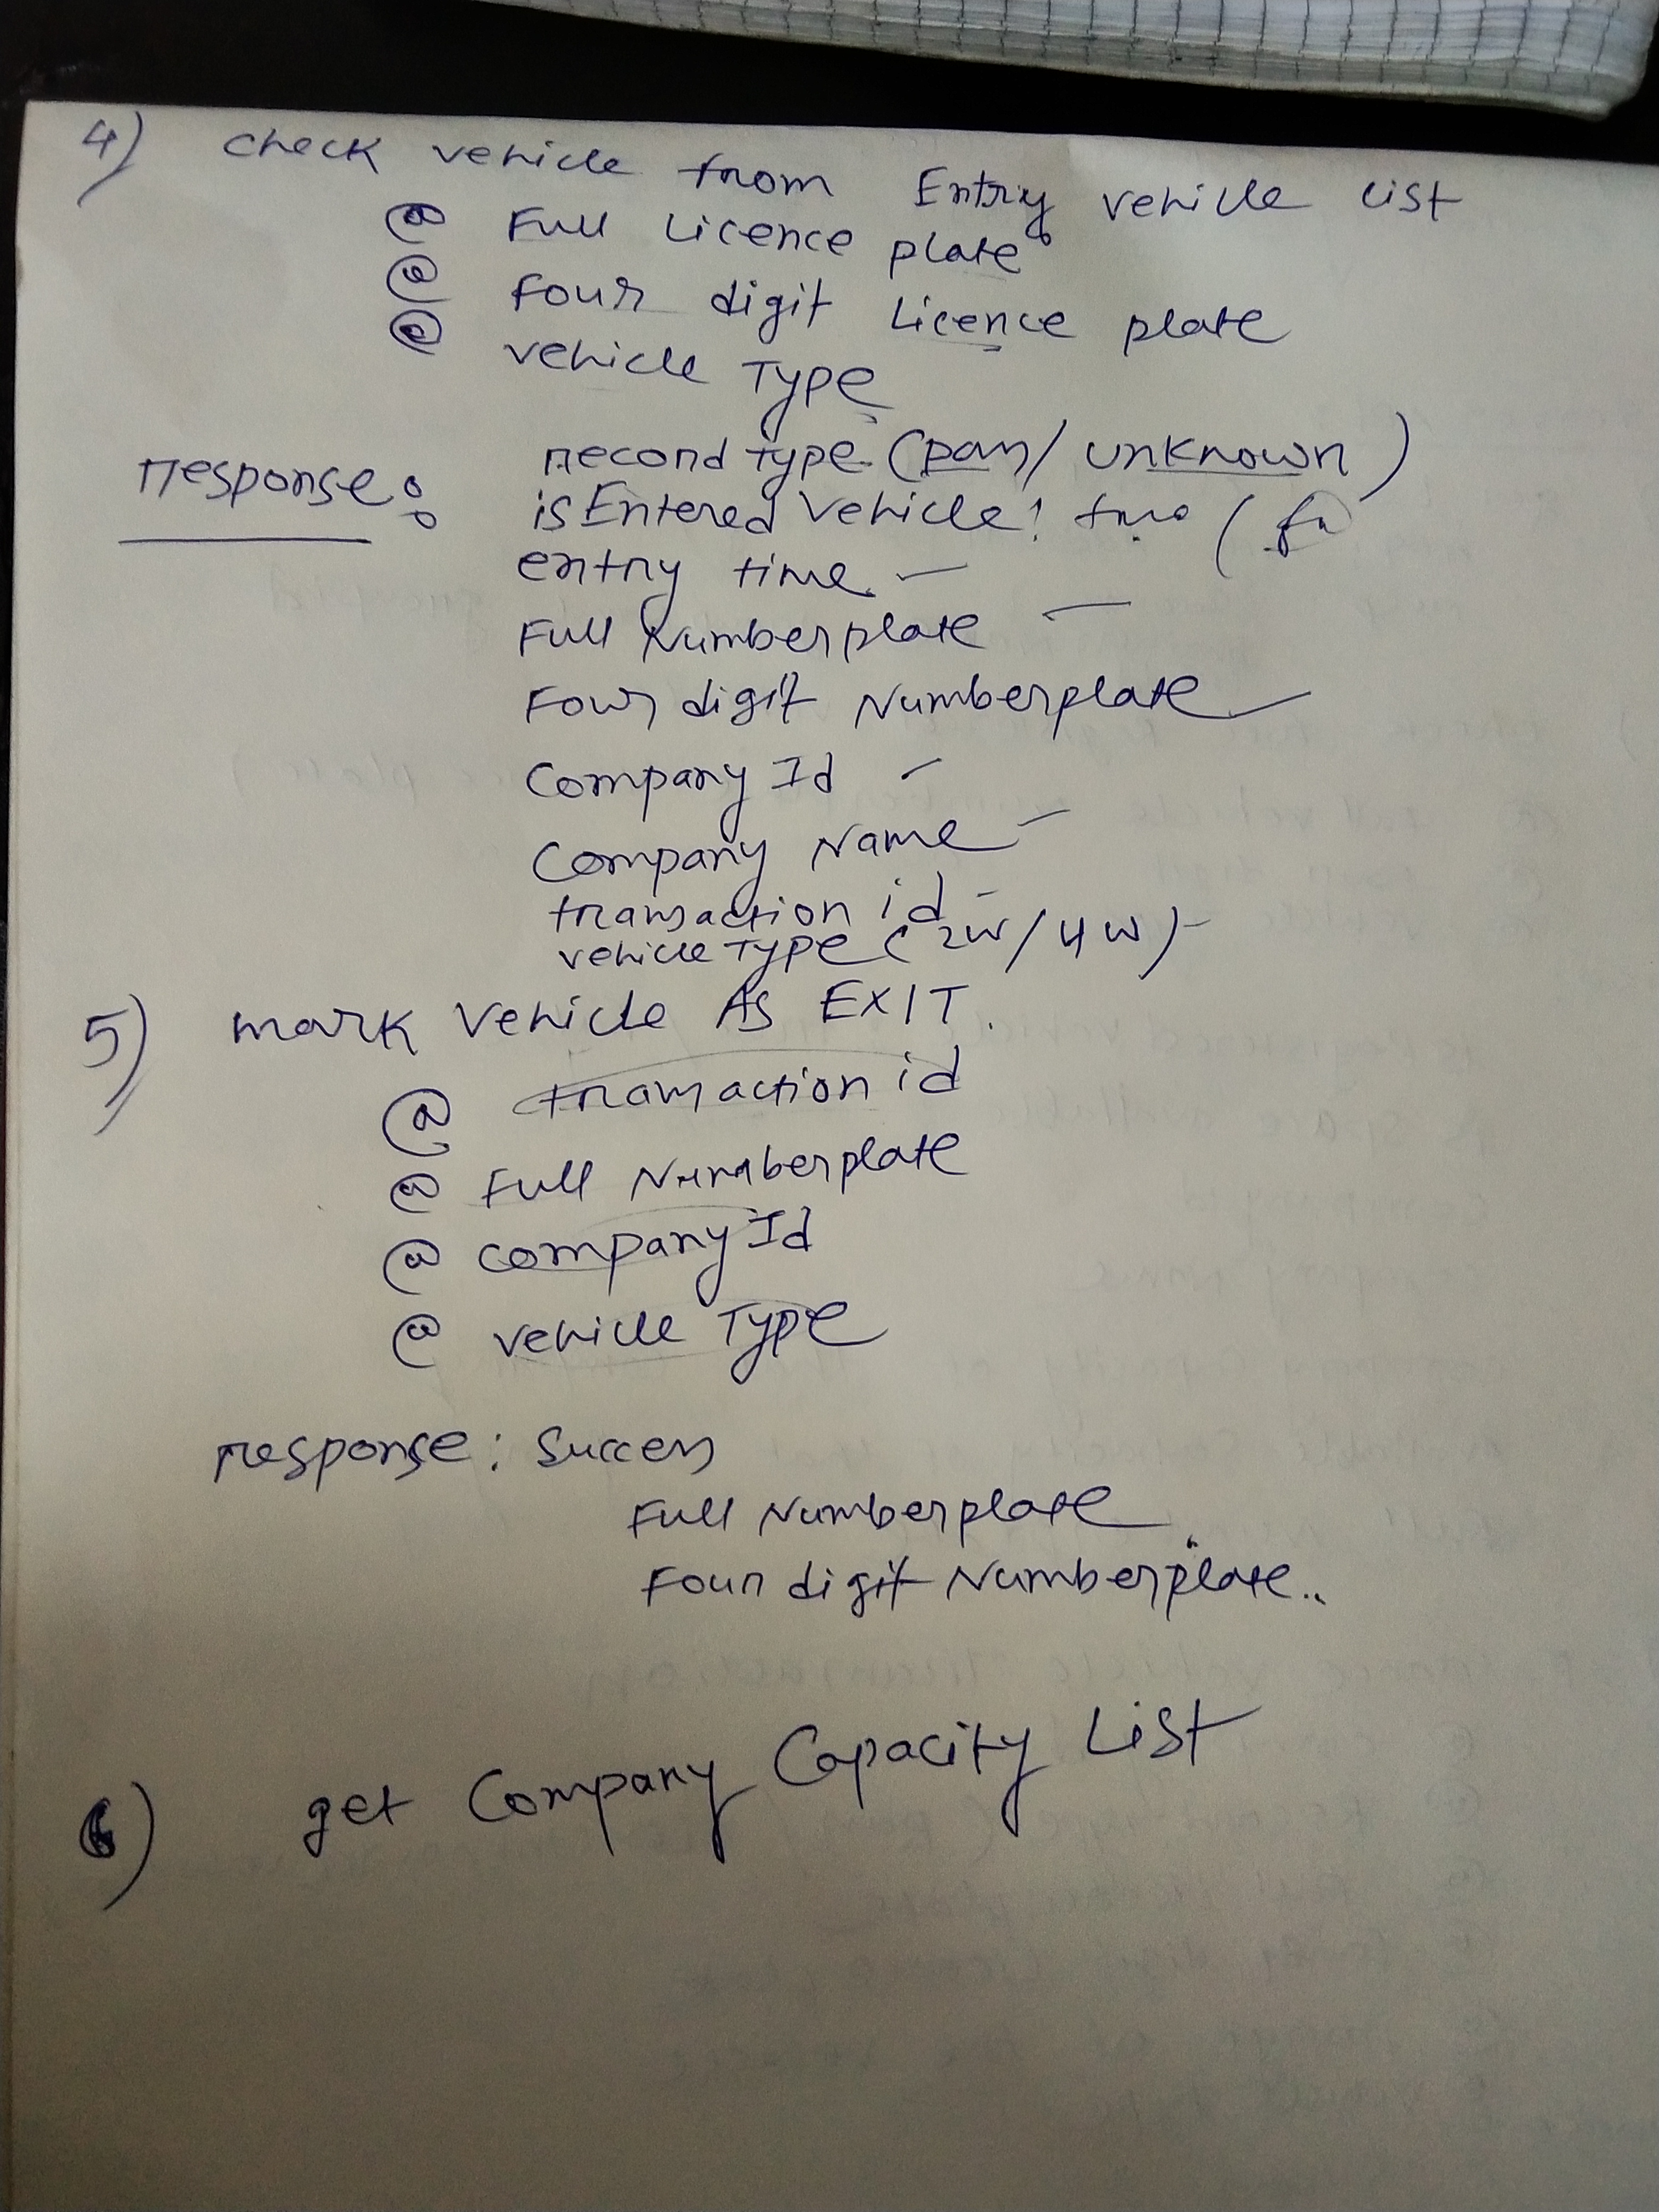 4) check vehicle from Entry vehicle list
@ Full Licence plate
@ four digit Licence plate
@ vehicle Type
response: record type (pass/ unknown)
is Entered Vehicle: true (fa
entry time -
Full Numberplate -
Four digit Numberplate -
Company Id -
Company Name -
transaction id -
vehicle Type (2W/4W) -
5) mark vehicle As EXIT.
@ transaction id
@ Full Numberplate
@ company Id
@ vehicle Type
response: Success
Full Numberplate
Four digit Numberplate..
6) get Company Capacity List